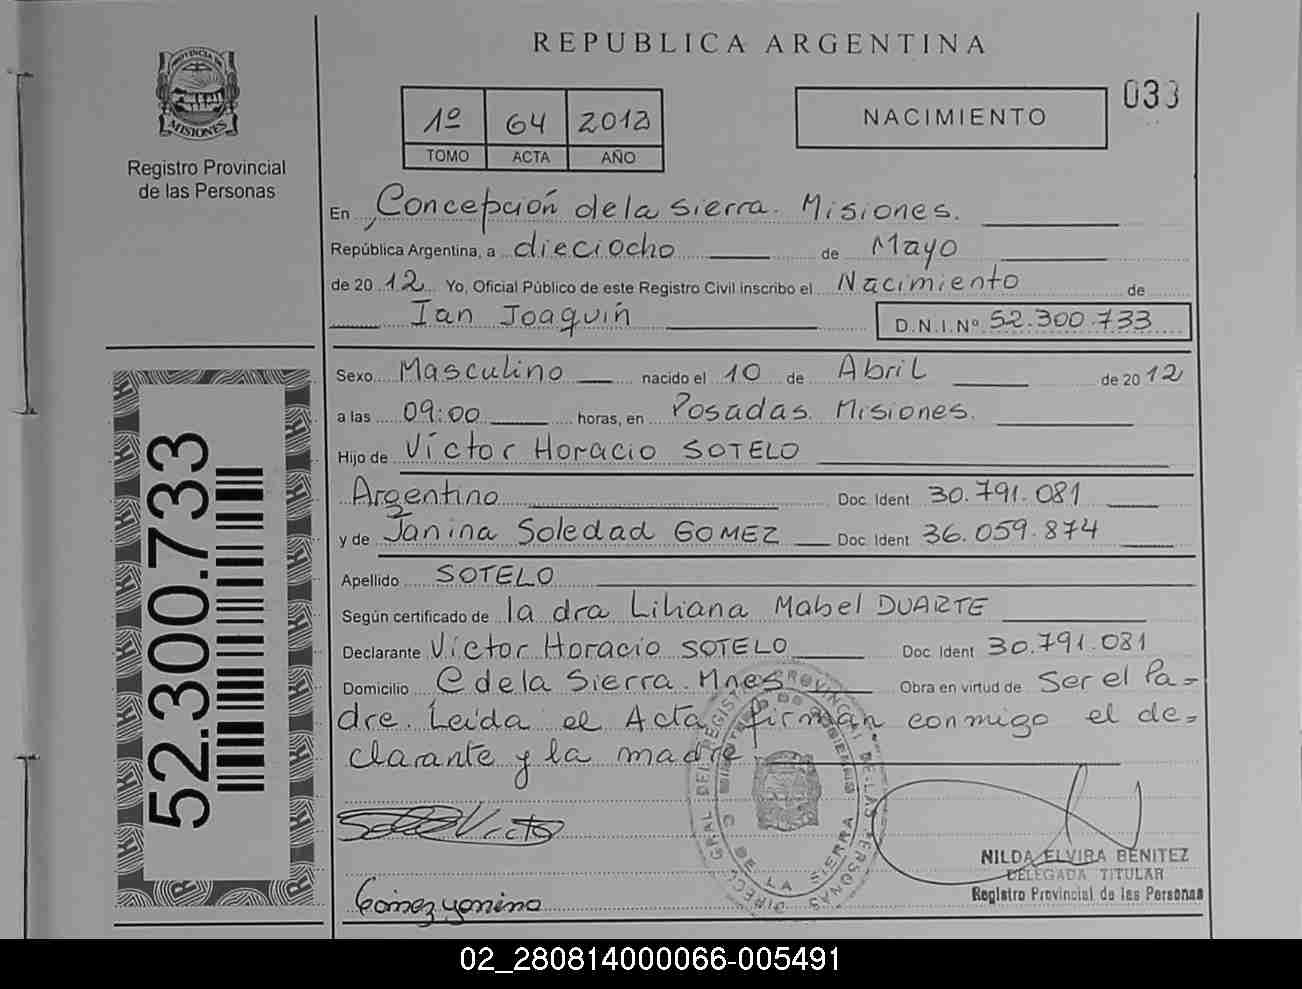 REPUBLICA ARGENTINA
PROVINCIA DE
MISIONES
Registro Provincial
de las Personas
1º 64 2012
TOMO ACTA AÑO
NACIMIENTO
033
En Concepción de la Sierra. Misiones.
República Argentina, a dieciocho de Mayo
de 2012 Yo, Oficial Público de este Registro Civil inscribo el Nacimiento de
Ian Joaquín D.N.I.Nº 52.300.733
Sexo Masculino nacido el 10 de Abril de 2012
a las 09:00 horas, en Posadas. Misiones.
Hijo de Víctor Horacio SOTELO
Argentino Doc. Ident 30.791.081
y de Janina Soledad GOMEZ Doc. Ident 36.059.874
Apellido SOTELO
Según certificado de la dra Liliana Mabel DUARTE
Declarante Víctor Horacio SOTELO Doc. Ident 30.791.081
Domicilio C de la Sierra. Mnes Obra en virtud de Ser el Pa-
dre. Leída el Acta firman conmigo el de-
clarante y la madre
52.300.733
Gómez yanina
NILDA ELVIRA BENITEZ
DELEGADA TITULAR
Registro Provincial de las Personas
02_280814000066-005491